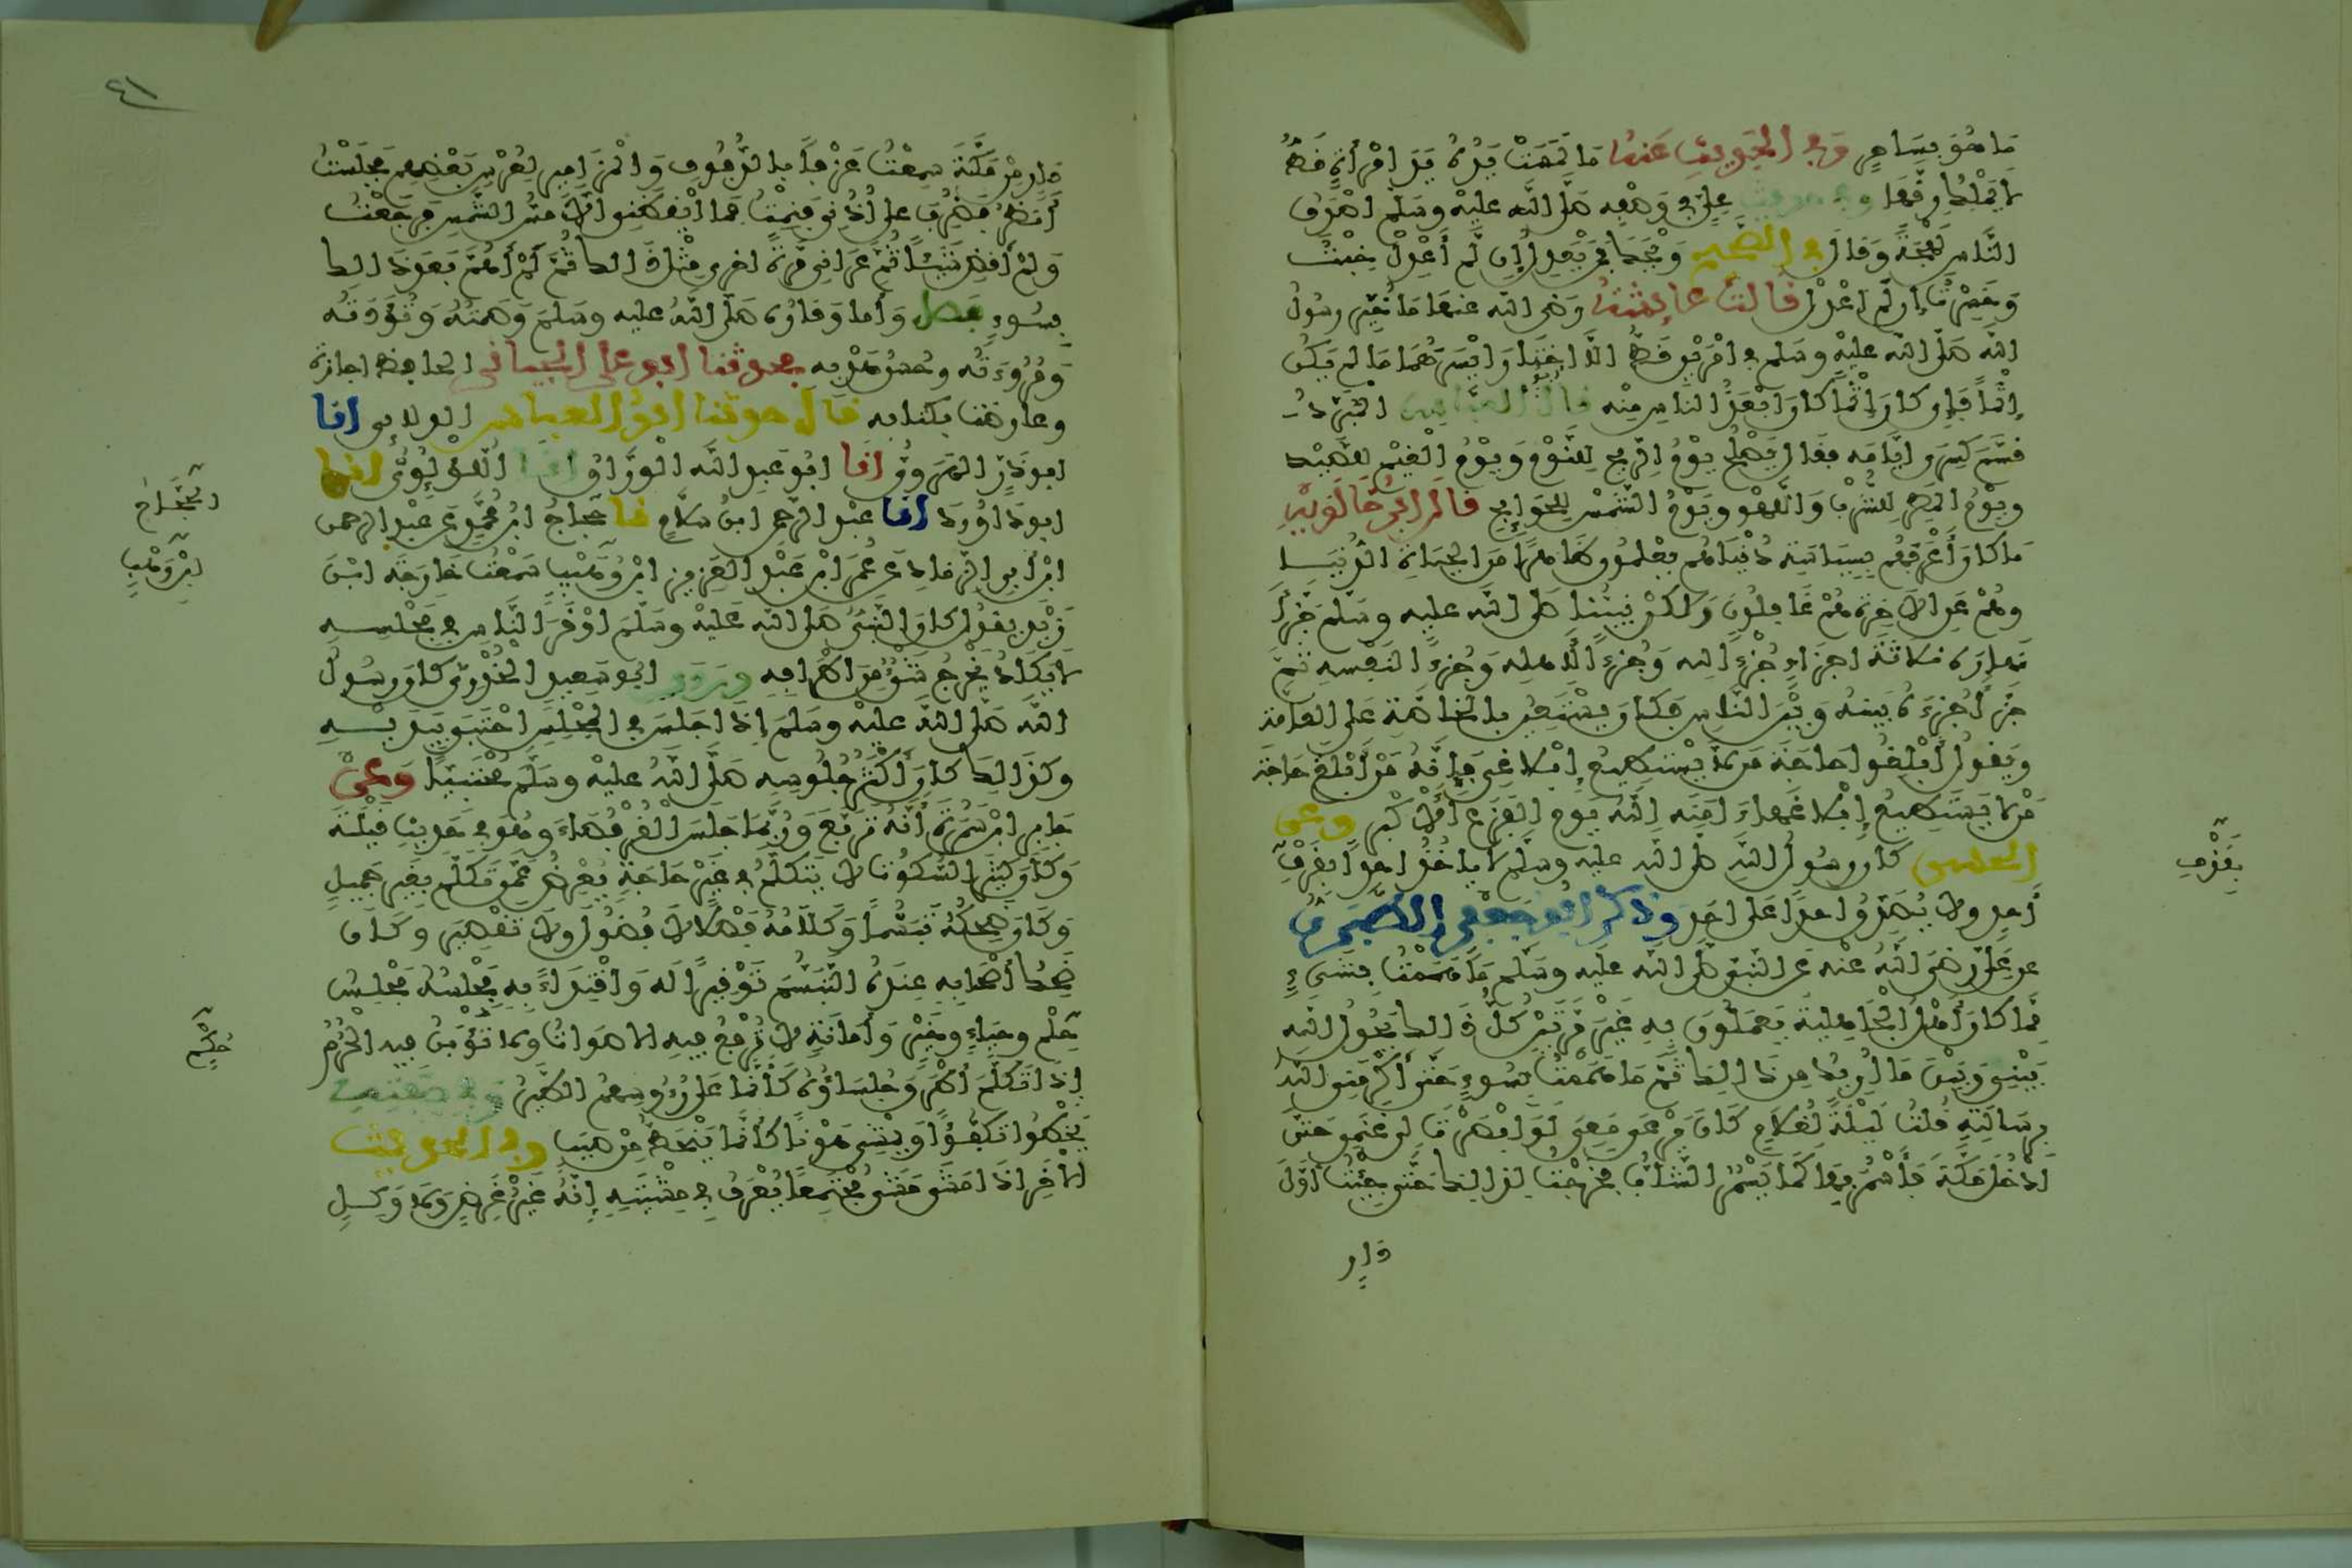 مَا هُوَ بِسَاحِرٍ وَفِي الحَدِيثِ عَنْهُ مَا لَمَسَتْ يَدُهُ يَدَ امْرَأَةٍ قَطُّ
لَا يَمْلِكُ رِقَّهَا وفي حديث عَلِيٍّ فِي وَصْفِهِ صَلَّى اللَّه عليْه وسَلَّم أصْدَقُ
النَّاسِ لَهْجَةً وَقَالَ فِي الصَّحِيحِ وَيْحَكَ فَمَنْ يَعْدِلُ إِن لَّمْ أَعْدِلْ خِبْتُ
وَخَسِرْتُ إِن لَّمْ أعْدِلْ قَالَتْ عَائِشَةُ رَضِيَ الله عنها مَا خُيِّرَ رسُولُ
اللهِ صَلَّى الله عليْهِ وسَلم في أمْرَيْنِ قَطُّ إلَّا اخْتَارَ أيْسَرَهُمَا مَا لم يَكُنْ
إِثْمًا فَإِن كانَ إِثْمًا كانَ أبْعَدَ الناسِ مِنْه قال أبو العَبَّاسِ الْمُبَرِّدُ
قَسَّمَ كِسْرَى أيَّامَه فقال يَصْلُحُ يَوْمُ الرِّيحِ لِلنَّوْمِ وَيَوْمُ الْغَيْمِ لِلصَّيْدِ
ويَوْمُ المَطَرِ لِلشُّرْبِ وَاللَّهْوِ ويَوْمُ الشَّمْسِ لِلْحَوَائِجِ قَالَ ابْنُ خَالَوَيْهِ
مَا كَانَ أَعْرَفَهُم بِسِيَاسَةِ دُنْيَاهُم يَعْلَمُونَ ظَاهِرًا مِنَ الحَيَاةِ الدُّنْيَا
وهُمْ عَنِ الآخِرَةِ هُمْ غَافِلُونَ وَلَكِنْ نَبِيُّنَا صَلى الله عليه وسَلم جَزَّأَ
نَهَارَهُ ثلاثَةَ أجزَاءٍ جُزْءًا لله وَجُزءًا لأهله وَجُزءًا لنَفْسِهِ ثمَّ
جَزَّأ جُزءَهُ بَينَهُ وَبَيْنَ النَّاسِ فَكَانَ يَسْتَعِينُ بالخَاصَّةِ على العامَّةِ
وَيَقُولُ أبْلِغُوا حَاجَةَ مَن لَا يَسْتَطِيعُ إِبْلَاغِي فَإِنَّهُ مَنْ أَبْلَغَ حَاجَةَ
مَن لا يَسْتَطِيعُ إِبْلَاغَهَا ءَامَنَه اللَّهُ يَوم الفَزَعِ الأَكْبَرِ وعن
الحسن كان رسُولُ اللَّهِ صَلى الله عليه وسَلم لا ياخُذُ أحدًا بِقَرْفِ
أَحد ولا يُصَدِّقُ أحدًا عَلى أحَدٍ وذكر أبو جعفر الطَّبَرِيُّ
عن عَلِيٍّ رضيَ اللَّهُ عَنْه عَن النَّبيِّ صَلى الله عليه وسَلَّم مَا هَمَمْتُ بِشَيْءٍ
مِّمَّا كانَ أَهْلُ الْجَاهِلِيَّةِ يَعْمَلُونَ بِهِ غَيْرَ مَرَّتَيْنِ كُلُّ ذَلك يَحُولُ اللَّه
بَيْنِي وَبَيْنَ مَا أُرِيدُ مِن ذَلِكَ ثُمَّ مَا هَمَمْتُ بِسُوءٍ حَتَّى أَكْرَمَنِي اللَّه
بِرِسَالَتِهِ قُلْتُ لَيْلَةً لِغُلَامٍ كَانَ يَرْعَى مَعِي لَوْ أَبْصَرْتَ لي غَنَمِي حَتَّى
أَدْخُلَ مَكَّةَ فَأَسْمُرَ بِهَا كَمَا يَسْمُرُ الشَّبَابُ فَخَرَجْتُ لِذَلِكَ حَتَّى جِئْتُ أَوَّلَ
دارٍ
بِقَرْفِ
٤١
دَارٍ مِنْ مَكَّةَ سَمِعْتُ عَزْفًا بالدُّفُوفِ وَالْمَزَامِيرِ لِعُرْسِ بَعْضِهِمْ فَجَلَسْتُ
أَنظُرُ فَضُرِبَ على أُذُنِي فَنِمْتُ فَما أيْقَظَنِي إلَّا مَسُّ الشَّمْسِ فَرَجَعْتُ
وَلَمْ أَقْضِ شَيْئًا ثُمَّ عَرَانِي مَرَّةً أُخرى مِثْلُ ذَلك ثُمَّ لَمْ أَهُمَّ بَعدَ ذَلك
بِسُوءٍ فصل وَأما وَقَارُهُ صَلى اللَّهُ عليه وسَلمَ وَصَمْتُهُ وَتُؤَدَتُه
وَمُرُوءَتُه وحُسْنُ هَدْيِه فحدثنا أبو علي الجياني الحافِظُ إجازةً
وعارضتُ بكتابه قال حدثنا أبو العباس الدلائي انا
ابو ذَرٍّ الهَرَوِيُّ انا أبُو عَبدِ اللَّه الْوَرَّاقُ انا اللُّؤْلُؤِيُّ انا
ابو دَاوُودَ انا عَبْدُ الرَّحمن ابنُ سَلَّامٍ نا حَجَّاجُ ابْنُ مُحَمَّدٍ عَن عَبْدِ الرحمن
ابْنِ أبي الزِّنَادِ عَن عُمَرَ ابْنِ عَبْدِ العَزِيزِ ابْنِ وُهَيْبٍ سَمِعْتُ خَارِجَةَ ابْنَ
زَيْدٍ يَقُولُ كانَ النَّبِيُّ صَلى الله عَليْه وسَلَّمَ أَوْقَرَ النَّاسِ في مَجْلِسِهِ
لَا يَكَادُ يُخْرِجُ شَيْئًا مِنَ اطْرَافِهِ وروى أبُو سَعِيدٍ الْخُدْرِيُّ كانَ رسُولُ
اللَّه صَلَّى اللَّهُ عليْه وسَلم إِذَا جَلَسَ في الْمَجْلِسِ احْتَبَى بِيَدَيْهِ
وكذَلِكَ كانَ أَكْثَرُ جُلُوسِهِ صَلَّى اللَّهُ عليْه وسَلَّم مُحْتَبِيًا وَعَنْ
جَابِرِ ابْنِ سَمُرَةَ أَنَّهُ تَرَبَّعَ وَرُبَّمَا جَلَسَ الْقُرْفُصَاءَ وهُوَ في حَدِيثِ قَيْلَةَ
وَكَانَ كَثِيرَ السُّكُوتِ لَا يَتَكَلَّمُ في غَيْرِ حَاجَةٍ يُعْرِضُ عَمَّن تَكَلَّمَ بِغَيْرِ جَمِيلٍ
وَكانَ ضَحِكُهُ تَبَسُّمًا وَكَلَامُهُ فَصْلًا لَا فُضُولَ وَلا تَقْصِيرَ وَكَانَ
ضَحِكُ أَصْحَابِهِ عِنْدَهُ التَّبَسُّمَ تَوْقِيرًا لَه وَاقْتِدَاءً بِهِ مَجْلِسُهُ مَجْلِسُ
حِلْمٍ وحَيَاءٍ وخَيْرٍ وَأَمَانَةٍ لَا تُرْفَعُ فِيهِ الأصْوَاتُ ولا تُؤْبَنُ فِيه الْحُرُمُ
إِذَا تَكَلَّمَ أَطْرَقَ جُلَسَاؤُهُ كَأَنَّمَا عَلَى رُءُوسِهِمُ الطَّيْرُ وَفِي صِفَتِهِ
يَخْطُو تَكَفُّؤًا وَيَمْشِي هَوْنًا كأنَّمَا يَنْحَطُّ مِنْ صَبَبٍ وفي الحديث
الآخَرِ إذَا مَشَى مَشَى مُجْتَمِعًا يُعْرَفُ فِي مِشْيَتِهِ إِنَّهُ غَيْرُ غَرِضٍ وَلَا وَكِلٍ
الْحَجَّاجُ
ابْنُ وَهْبٍ
حُكْمٍ